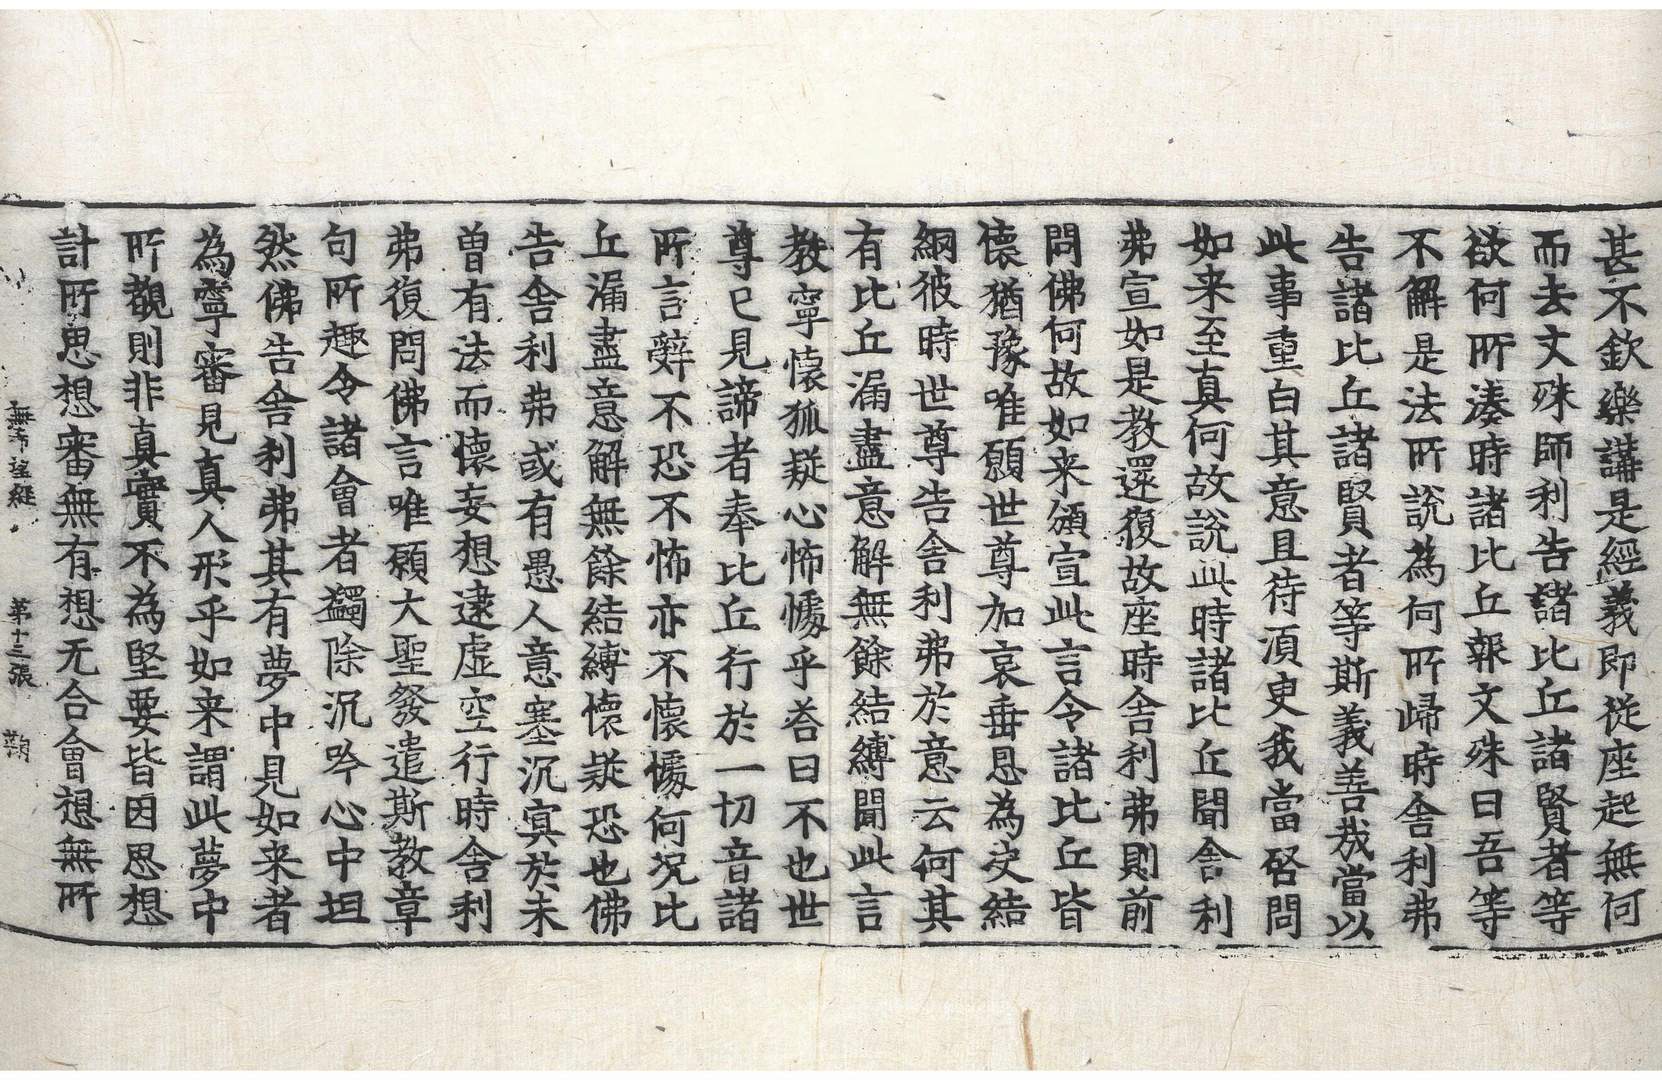 甚不欽樂講是經義即從座起無何
而去文殊師利告諸比丘諸賢者等
欲何所湊時諸比丘報文殊曰吾等
不解是法所說為何所歸時舍利弗
告諸比丘諸賢者等斯義善哉當以
此事重白其意且待須臾我當啓問
如来至真何故說此時諸比丘聞舍利
弗宣如是教還復故座時舍利弗則前
問佛何故如来頒宣此言令諸比丘皆
懷猶豫唯願世尊加哀垂恩為決結
網彼時世尊告舍利弗於意云何其
有比丘漏盡意解無餘結縛聞此言
教寧懷狐疑心怖懅乎荅曰不也世
尊已見諦者奉比丘行於一切音諸
所言辭不恐不怖亦不懷懅何況比
丘漏盡意解無餘結縛懷疑恐也佛
告舍利弗或有愚人意塞沉寞於未
曾有法而懷妄想逮虛空行時舍利
弗復問佛言唯願大聖發遣斯教章
句所趣令諸會者蠲除沉吟心中坦
然佛告舍利弗其有夢中見如来者
為寧審見真人形乎如来謂此夢中
所觀則非真實不為堅要皆因思想
計所思想審無有想无合會想無所
無希望經 第十三張